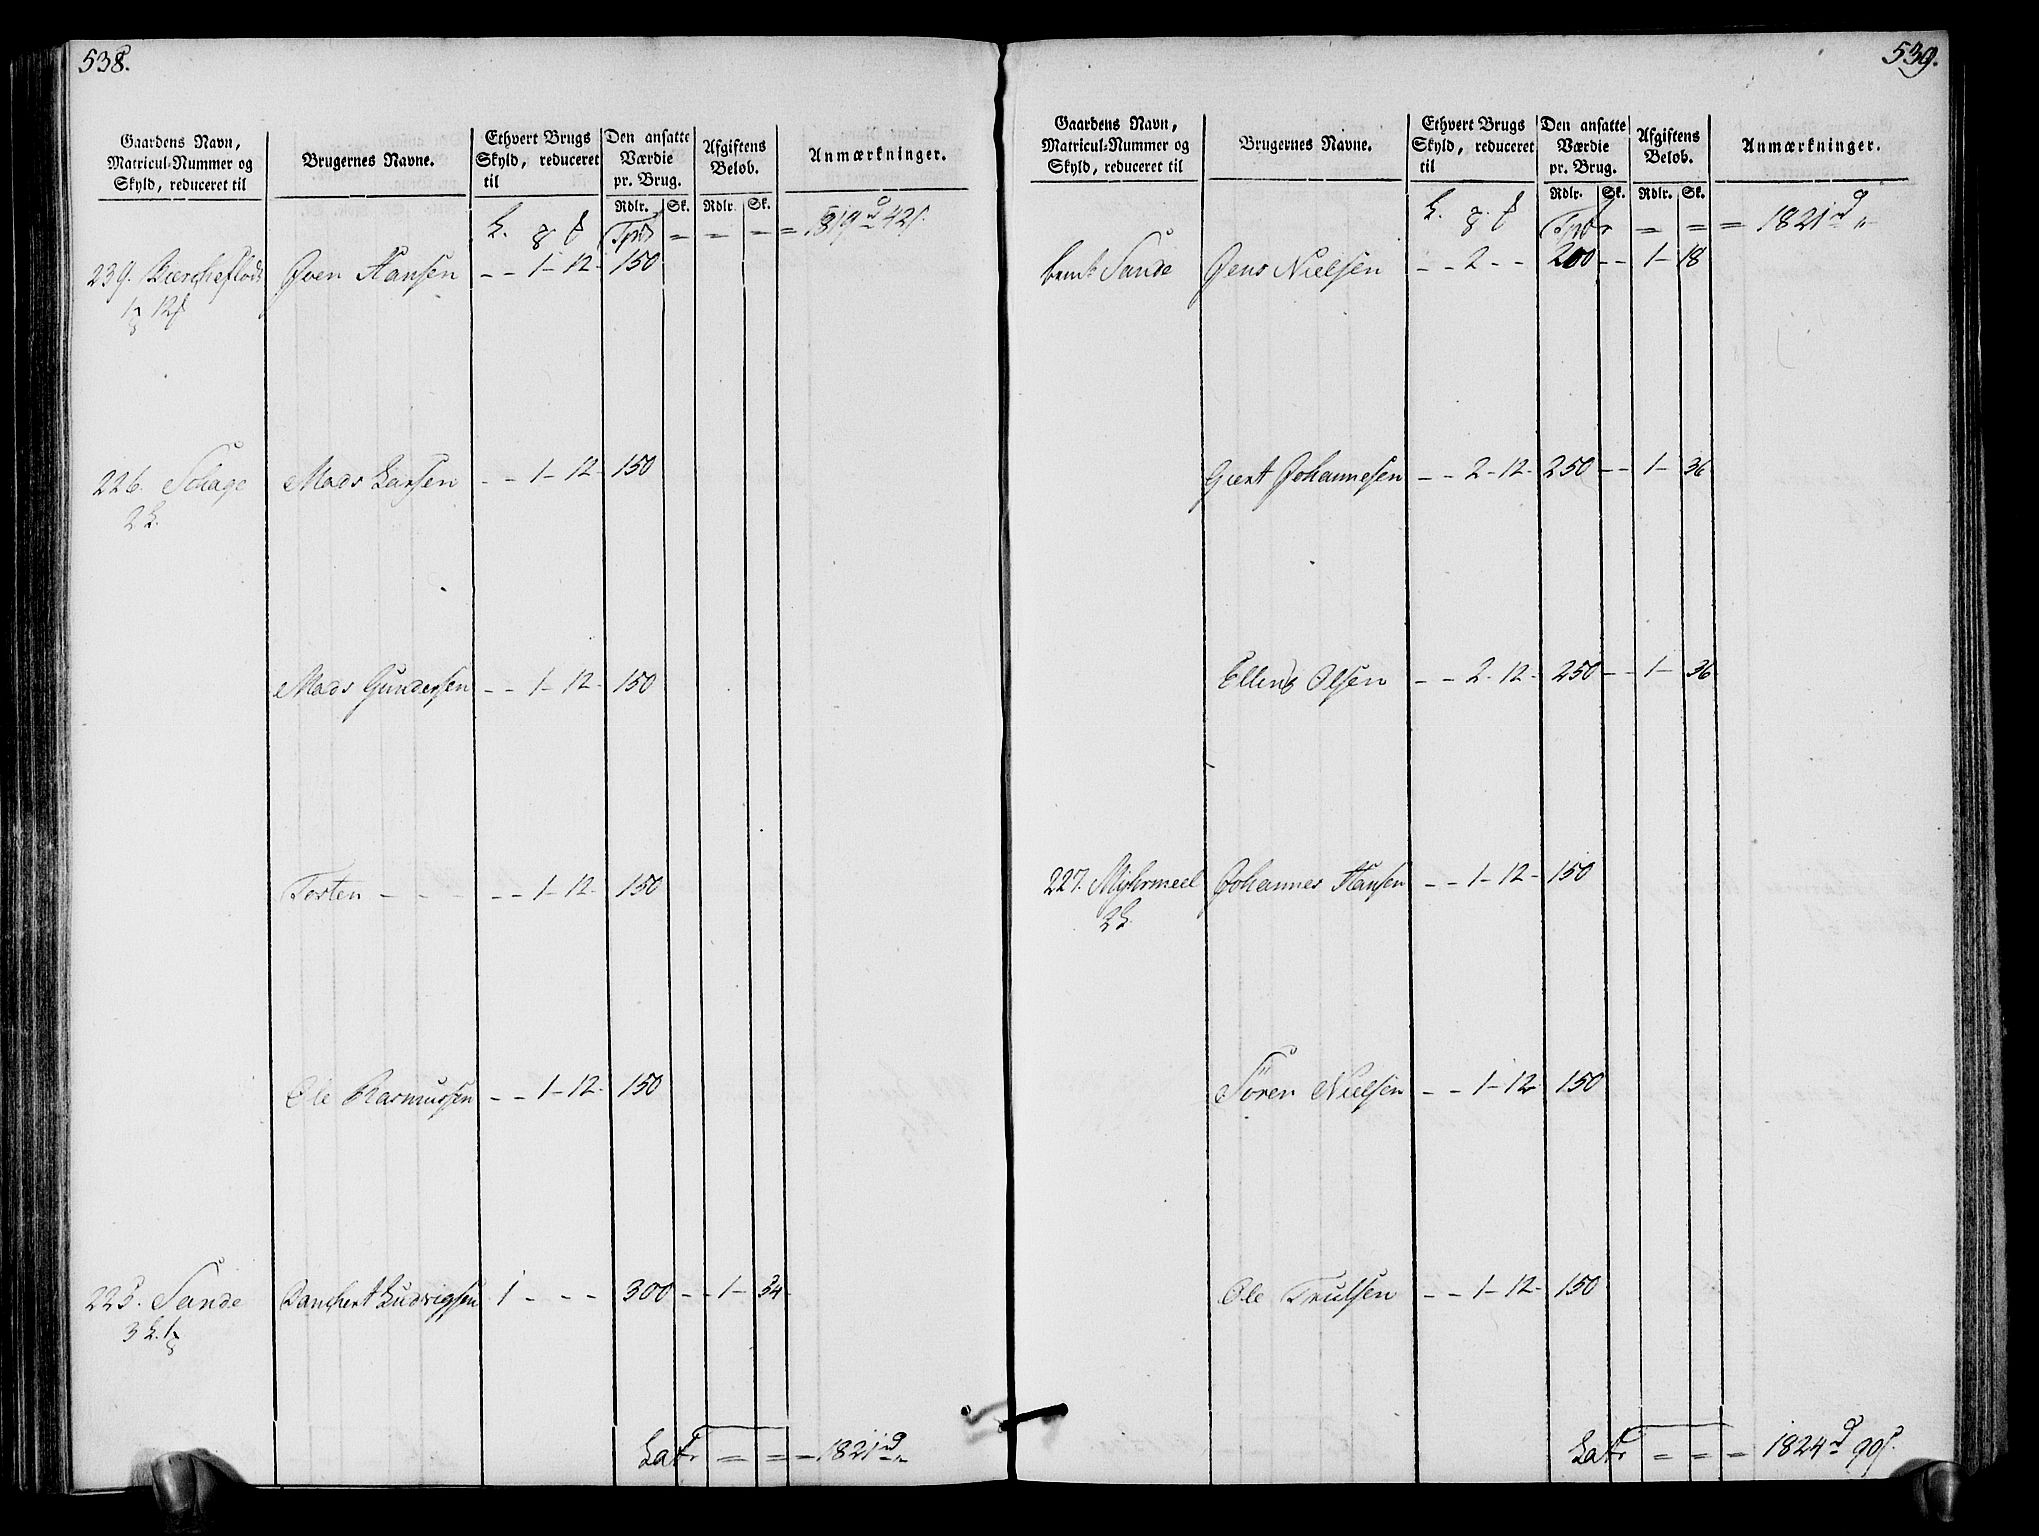 538.
Gaardens Navn, Matricul-Nummer og Skyld, reduceret til
Brugernes Navne.
Ethvert Brugs Skyld, reduceret til
Den ansatte Værdie pr. Brug.
Afgiftens Beløb.
Anmærkninger.
Rdlr. Sk. Rdlr. Sk.
Tpr = = = = 1819 d 42 s.
239. Biercheflodt Iven Hansen - - 1 - 12 - 150
12 s
226. Schage Mads Larsen - - 1 - 12 - 150
2 L.
Mads Gundersen - - 1 - 12 - 150
Torsten - - - - - 1 - 12 - 150
Ole Rasmussen - - 1 - 12 - 150
225. Sande Danchert Ludvigsen 1 - - - 300 - - 1 - 34
3 L. 1
Latr = = = 1821 d "
539.
Gaardens Navn, Matricul-Nummer og Skyld, reduceret til
Brugernes Navne.
Ethvert Brugs Skyld, reduceret til
Den ansatte Værdie pr. Brug.
Afgiftens Beløb.
Anmærkninger.
Rdlr. Sk. Rdlr. Sk.
Tpr = = = 1821 d "
bemt Sande Jens Nielsen - - 2 - - 200 - - 1 - 18
Giert Johannesen - - 2 - 12 - 250 - - 1 - 36
Elling Olsen - - 2 - 12 - 250 - - 1 - 36
227. Myhrmeel Johannes Hansen - - 1 - 12 - 150
2 L.
Sören Nielsen - - 1 - 12 150
Ole Trulsen - - 1 - 12 - 150
Latr = = = 1824 d 90 s.